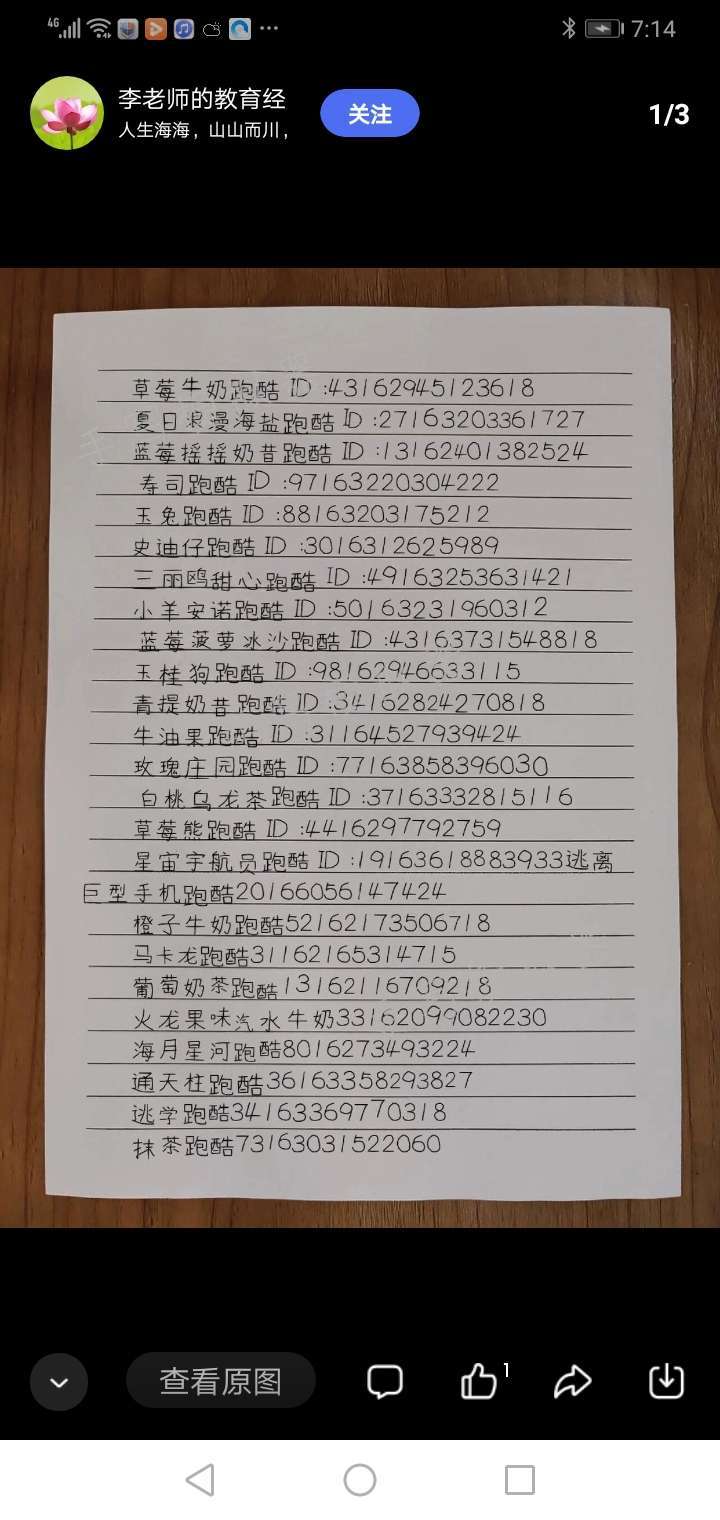 4G
7:14
李老师的教育经
人生海海，山山而川，
关注
1/3
草莓牛奶跑酷 ID :43162945123618
夏日浪漫海盐跑酷 ID :27163203361727
蓝莓摇摇奶昔跑酷 ID :13162401382524
寿司跑酷 ID :97163220304222
玉兔跑酷 ID :88163203175212
史迪仔跑酷 ID :3016312625989
三丽鸥甜心跑酷 ID :49163253631421
小羊安诺跑酷 ID :50163231960312
蓝莓菠萝冰沙跑酷 ID :43163731548818
玉桂狗跑酷 ID :98162946633115
青提奶昔跑酷 ID :34162824270818
牛油果跑酷 ID :31164527939424
玫瑰庄园跑酷 ID :77163858396030
白桃乌龙茶跑酷 ID :37163332815116
草莓熊跑酷 ID :4416297792759
星宙宇航员跑酷 ID :19163618883933逃离
巨型手机跑酷20166056147424
橙子牛奶跑酷52162173506718
马卡龙跑酷31162165314715
葡萄奶茶跑酷13162116709218
火龙果味汽水牛奶33162099082230
海月星河跑酷8016273493224
通天柱跑酷36163358293827
逃学跑酷34163369770318
抹茶跑酷73163031522060
查看原图
1